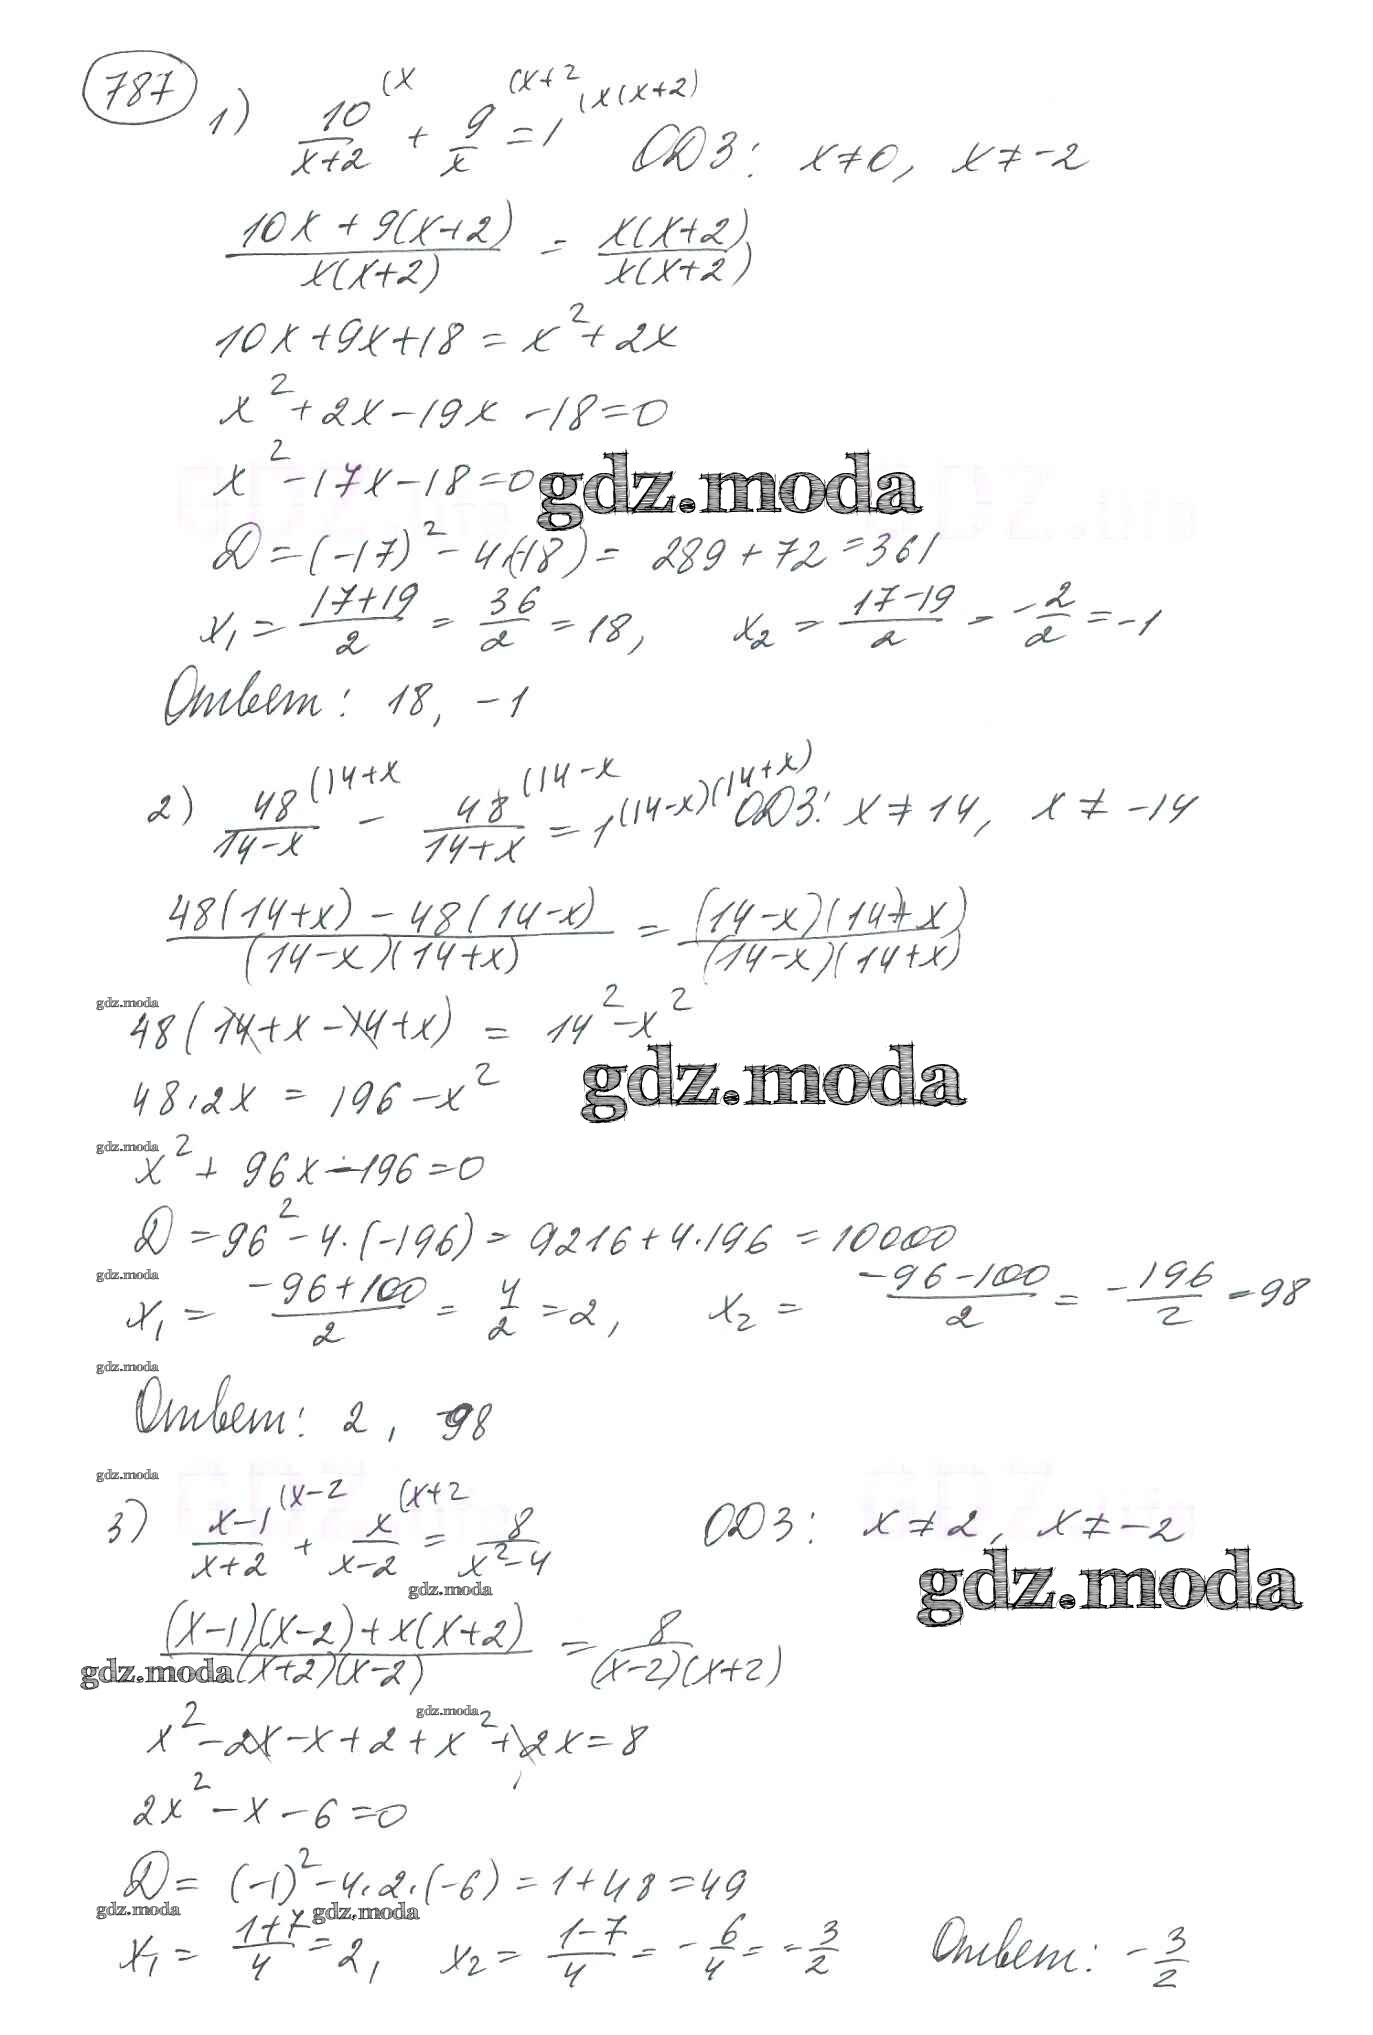 787
1) 10/(x+2) (x + 9/x (x+2 = 1 (x(x+2) ОДЗ: x≠0, x≠-2
(10x + 9(x+2))/(x(x+2)) = (x(x+2))/(x(x+2))
10x+9x+18 = x²+2x
x²+2x-19x-18=0
x²-17x-18=0
gdz.moda
D=(-17)²-4·(-18)= 289+72=361
x₁ = (17+19)/2 = 36/2 = 18, x₂ = (17-19)/2 = -2/2 = -1
Ответ: 18, -1
2) 48/(14-x) (14+x - 48/(14+x) (14-x = 1 (14-x)(14+x) ОДЗ: x≠14, x≠-14
(48(14+x) - 48(14-x))/((14-x)(14+x)) = ((14-x)(14+x))/((14-x)(14+x))
gdz.moda
48(14+x-14+x) = 14²-x²
gdz.moda
48·2x = 196-x²
gdz.moda
x²+96x-196=0
D=96²-4·(-196)= 9216+4·196=10000
gdz.moda
x₁ = (-96+100)/2 = 4/2 = 2, x₂ = (-96-100)/2 = -196/2 = -98
gdz.moda
Ответ: 2, -98
gdz.moda
3) (x-1)/(x+2) (x-2 + x/(x-2) (x+2 = 8/(x²-4) ОДЗ: x≠2, x≠-2
gdz.moda
gdz.moda
((x-1)(x-2)+x(x+2))/((x+2)(x-2)) = 8/((x-2)(x+2))
gdz.moda
gdz.moda
x²-2x-x+2+x²+2x=8
2x²-x-6=0
D= (-1)²-4·2·(-6)=1+48=49
gdz.moda gdz.moda
x₁ = (1+7)/4 = 2, x₂ = (1-7)/4 = -6/4 = -3/2 Ответ: -3/2